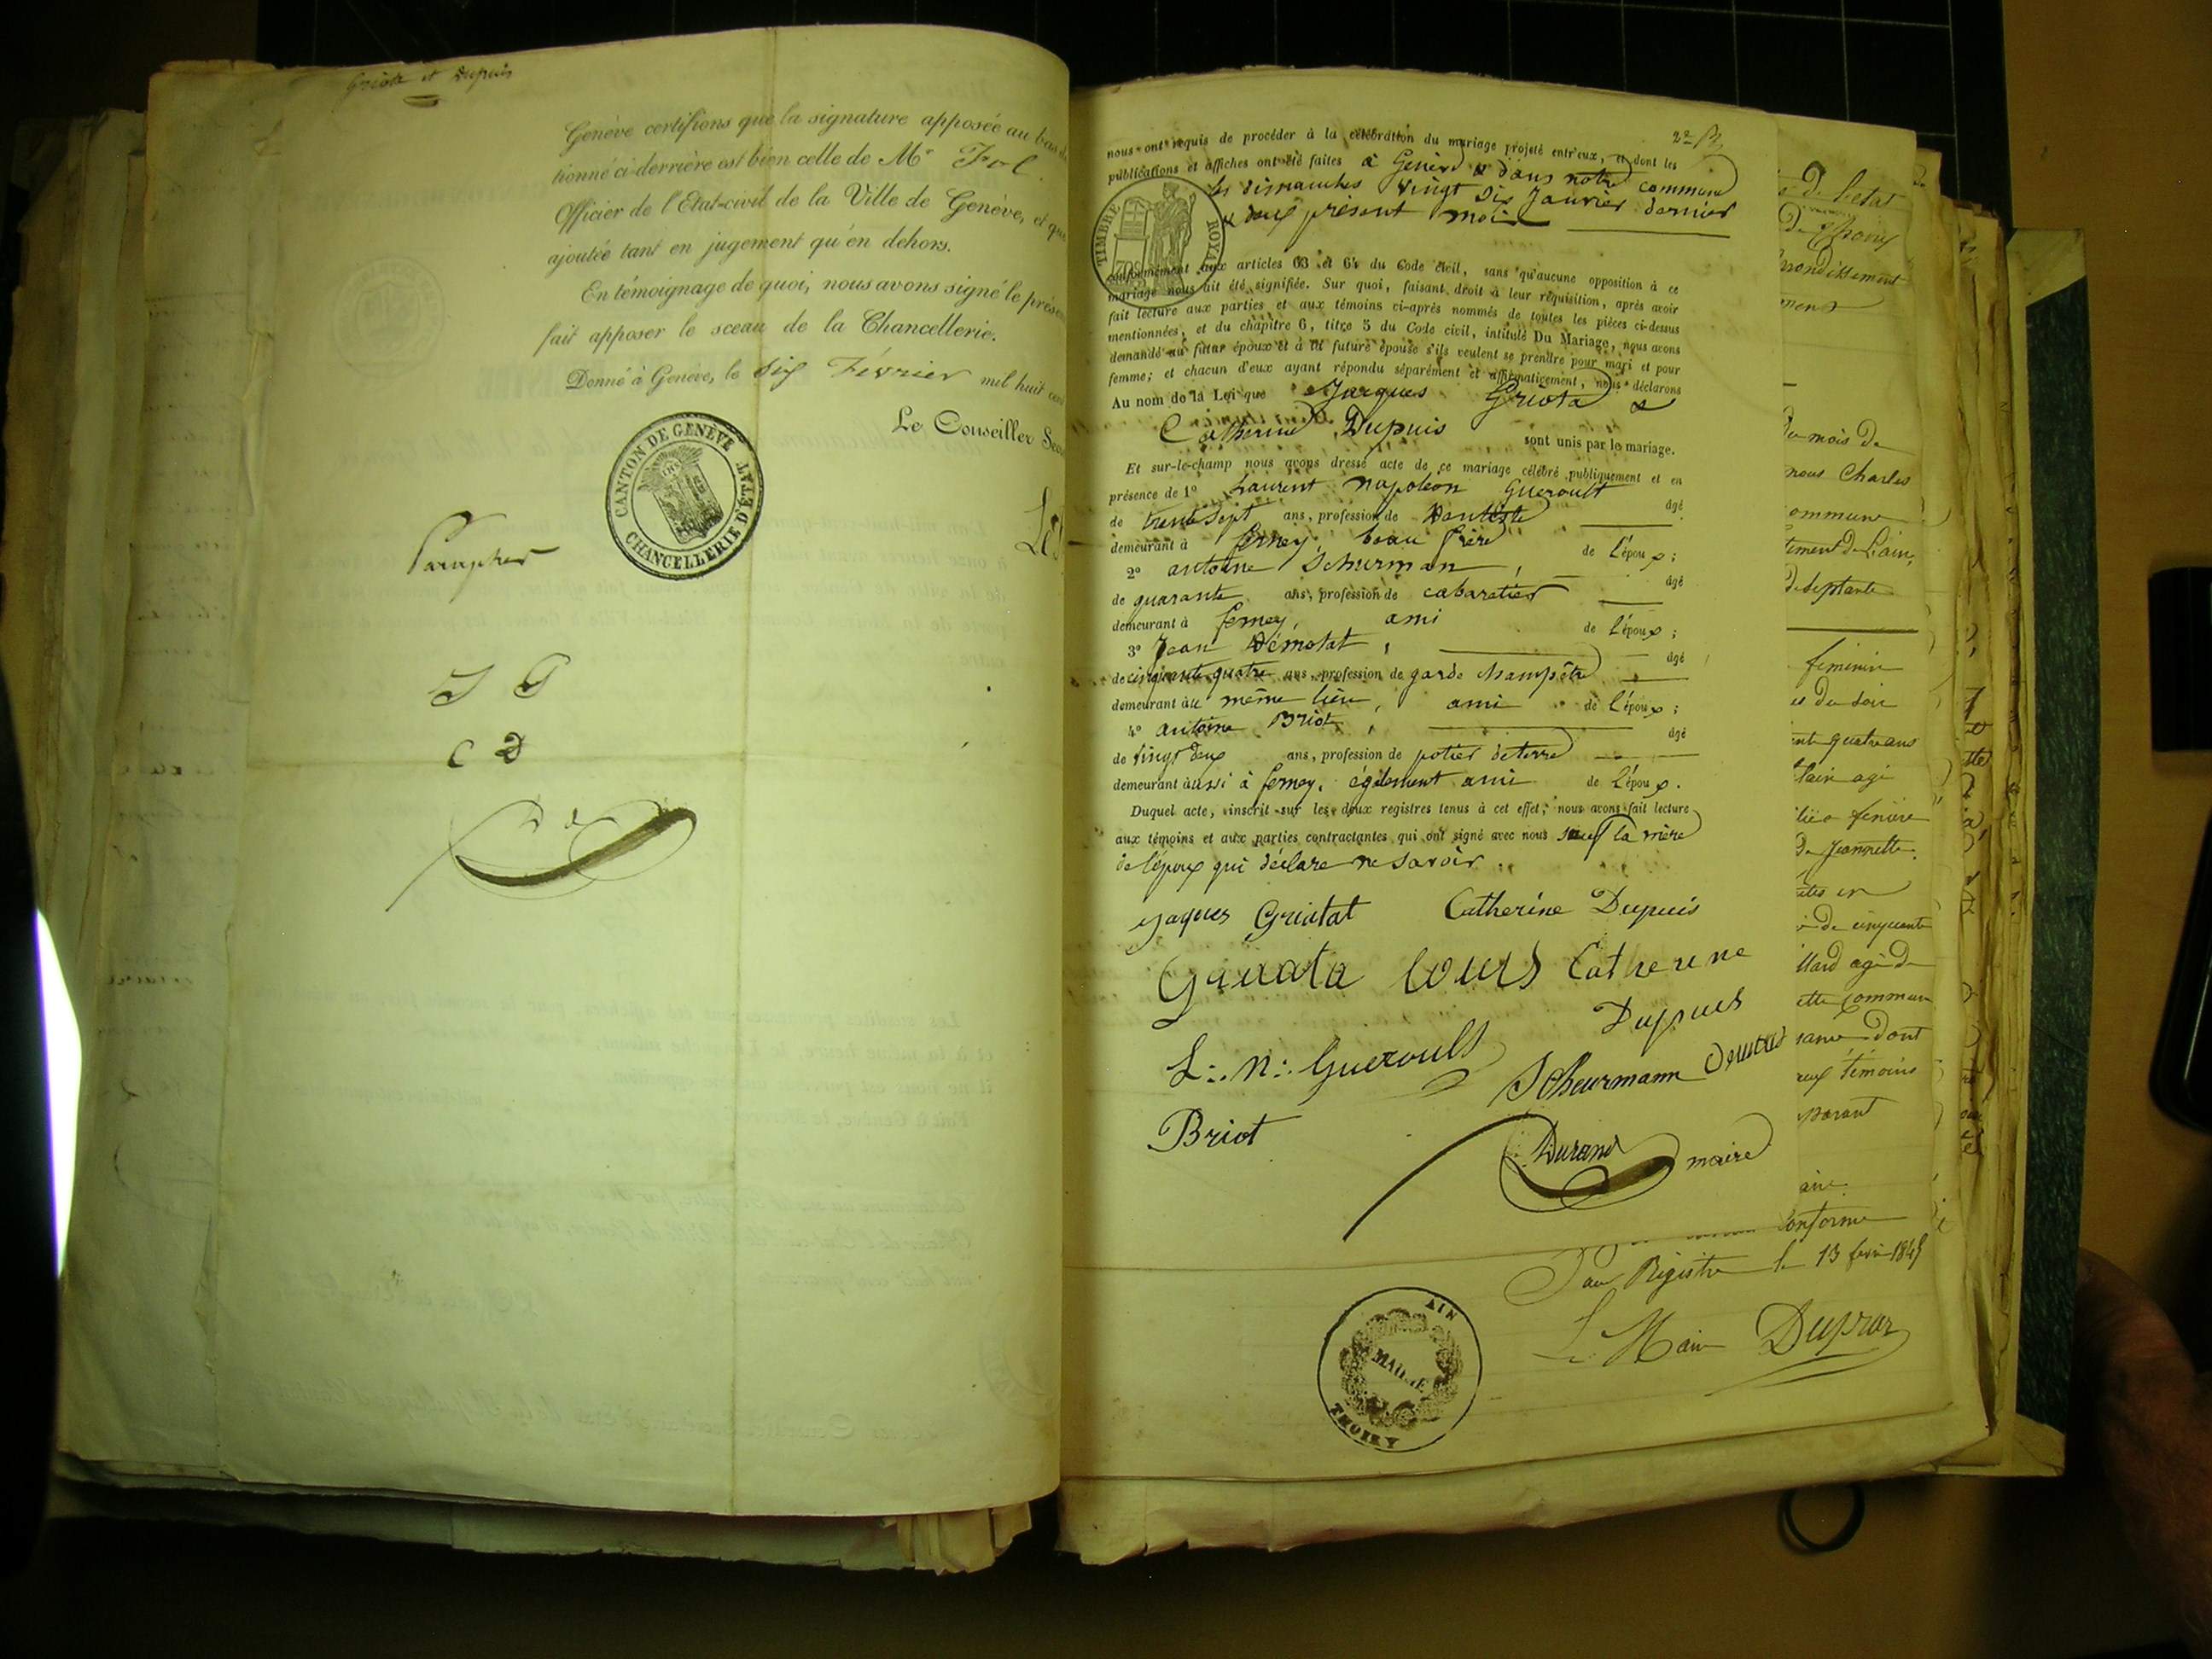 Griota et Dupuis
Genève certifions que la signature apposée au bas
tionné ci-derrière est bien celle de Mr Fol.
Officier de l'Etat-civil de la Ville de Genève, et que
ajoutée tant en jugement qu'en dehors.
En témoignage de quoi, nous avons signé le prése
fait apposer le sceau de la Chancellerie.
Donné à Genève, le dix Février mil huit cent
Le Conseiller Sec
CANTON DE GENÈVE
CHANCELLERIE D'ÉTAT
Parapher
J G
C D
nous ont requis de procéder à la célébration du mariage projeté entr'eux, et dont les
publications et affiches ont été faites à Genève & dans notre commune
les dimanches vingt six Janvier dernier
& deux présent mois
TIMBRE ROYAL
conformément aux articles 63 et 64 du Code civil, sans qu'aucune opposition à ce
mariage nous ait été signifiée. Sur quoi, faisant droit à leur réquisition, après avoir
fait lecture aux parties et aux témoins ci-après nommés de toutes les pièces ci-dessus
mentionnées, et du chapitre 6, titre 5 du Code civil, intitulé Du Mariage, nous avons
demandé au futur époux et à la future épouse s'ils veulent se prendre pour mari et pour
femme; et chacun d'eux ayant répondu séparément et affirmativement, nous déclarons
Au nom de la Loi que Jacques Griota &
Catherine Dupuis sont unis par le mariage.
Et sur-le-champ nous avons dressé acte de ce mariage célébré publiquement et en
présence de 1° Laurent napoléon Gueroult âgé
de trente sept ans, profession de
demeurant à ferney, beau frère de l'époux;
2° antoine Schurman, âgé
de quarante ans, profession de cabaretier
demeurant à ferney, ami de l'époux;
3° Jean Démotat, âgé
de cinquante quatre ans, profession de garde champêtre
demeurant au même lieu, ami de l'époux;
4° antoine Briot, âgé
de vingt deux ans, profession de potier de terre
demeurant aussi à ferney, également ami de l'époux.
Duquel acte, inscrit sur les deux registres tenus à cet effet, nous avons fait lecture
aux témoins et aux parties contractantes qui ont signé avec nous sauf la mère
de l'époux qui déclare ne savoir.
Jaques Griotat Catherine Dupuis
louis Catherine
Dupuis
L. N. Gueroult
Scheurmann
Briot
Durand maire
de l'etat
de Thoiry
arrondissement
du mois de
nous Charles
commune
tement de l'ain,
de septante
feminin
es du soir
quatre ans
âgé
de Jeannette
de cinquante
âgé de
ette commune
dont
témoins
ain
conforme
au Registre le 13 fevr 1845
Le Maire Dupraz
AIN
MAIRIE
THOIRY